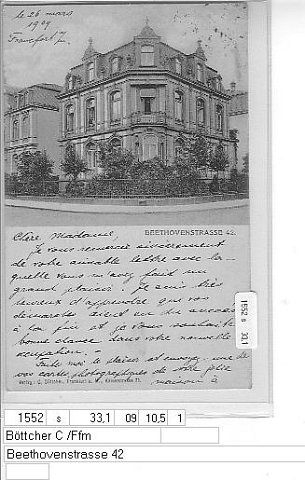 le 26 mars
1909
Francfort
BEETHOVENSTRASSE 42.
Chère Madame,
Je vous remercie sincèrement
de votre aimable lettre avec la-
quelle vous m'avez fait un
grand plaisir. Je suis très
heureux d'apprendre que vos
démarches aient eu du succès
à la fin et je vous souhaite
bonne chance dans votre nouvelle
occupation. -
Faite moi le plaisir et envoyez une de
vos cartes photographiques de votre jolie
maison à
Verlag: C. Böttcher, Frankfurt a. M.,
1552 s 33,1
1552 s 33,1 09 10,5 1
Böttcher C /Ffm
Beethovenstrasse 42